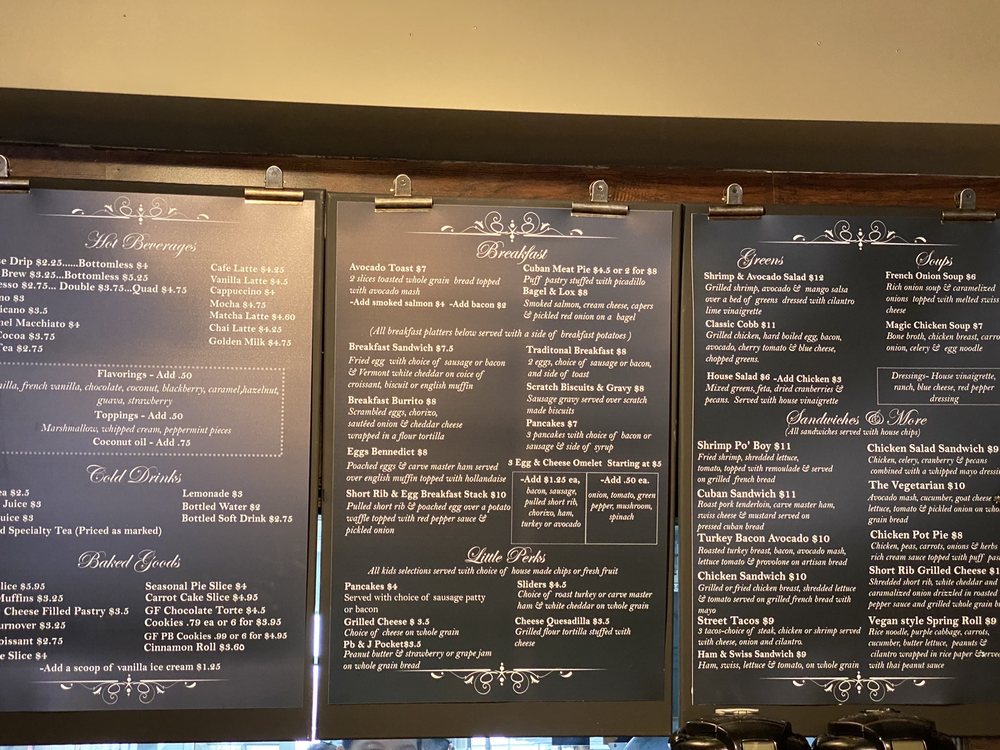 Hot Beverages
Drip $2.25.....Bottomless $4
Brew $3.25...Bottomless $5.25
$2.75... Double $3.75...Quad $4.75
$3
$3.5
Macchiato $4
Cocoa $3.75
Tea $2.75
Cafe Latte $4.25
Vanilla Latte $4.5
Cappuccino $4
Mocha $4.75
Matcha Latte $4.60
Chai Latte $4.25
Golden Milk $4.75
Flavorings - Add .50
french vanilla, chocolate, coconut, blackberry, caramel,hazelnut,
guava, strawberry
Toppings - Add .50
Marshmallow, whipped cream, peppermint pieces
Coconut oil - Add .75
Cold Drinks
$2.5
Juice $3
$3
Specialty Tea (Priced as marked)
Lemonade $3
Bottled Water $2
Bottled Soft Drink $2.75
Baked Goods
$5.95
Muffins $3.25
Cheese Filled Pastry $3.5
$3.25
$2.75
Slice $4
Seasonal Pie Slice $4
Carrot Cake Slice $4.95
GF Chocolate Torte $4.5
Cookies .79 ea or 6 for $3.95
GF PB Cookies .99 or 6 for $4.95
Cinnamon Roll $3.60
-Add a scoop of vanilla ice cream $1.25
Breakfast
Avocado Toast $7
2 slices toasted whole grain bread topped
with avocado mash
-Add smoked salmon $4 -Add bacon $2
Cuban Meat Pie $4.5 or 2 for $8
Puff pastry stuffed with picadillo
Bagel & Lox $8
Smoked salmon, cream cheese, capers
& pickled red onion on a bagel
(All breakfast platters below served with a side of breakfast potatoes )
Breakfast Sandwich $7.5
Fried egg with choice of sausage or bacon
& Vermont white cheddar on coice of
croissant, biscuit or english muffin
Breakfast Burrito $8
Scrambled eggs, chorizo,
sautéed onion & cheddar cheese
wrapped in a flour tortilla
Eggs Bennedict $8
Poached eggs & carve master ham served
over english muffin topped with hollandaise
Short Rib & Egg Breakfast Stack $10
Pulled short rib & poached egg over a potato
waffle topped with red pepper sauce &
pickled onion
Traditonal Breakfast $8
2 eggs, choice of sausage or bacon,
and side of toast
Scratch Biscuits & Gravy $8
Sausage gravy served over scratch
made biscuits
Pancakes $7
3 pancakes with choice of bacon or
sausage & side of syrup
3 Egg & Cheese Omelet Starting at $5
-Add $1.25 ea,
bacon, sausage,
pulled short rib,
chorizo, ham,
turkey or avocado
-Add .50 ea.
onion, tomato, green
pepper, mushroom,
spinach
Little Perks
All kids selections served with choice of house made chips or fresh fruit
Pancakes $4
Served with choice of sausage patty
or bacon
Grilled Cheese $ 3.5
Choice of cheese on whole grain
Pb & J Pocket$3.5
Peanut butter & strawberry or grape jam
on whole grain bread
Sliders $4.5
Choice of roast turkey or carve master
ham & white cheddar on whole grain
Cheese Quesadilla $3.5
Grilled flour tortilla stuffed with
cheese
Greens
Shrimp & Avocado Salad $12
Grilled shrimp, avocado & mango salsa
over a bed of greens dressed with cilantro
lime vinaigrette
Classic Cobb $11
Grilled chicken, hard boiled egg, bacon,
avocado, cherry tomato & blue cheese,
chopped greens.
House Salad $6 -Add Chicken $3
Mixed greens, feta, dried cranberries &
pecans. Served with house vinaigrette
Soups
French Onion Soup $6
Rich onion soup & caramelized
onions topped with melted swiss
cheese
Magic Chicken Soup $7
Bone broth, chicken breast,
onion, celery & egg noodle
Dressings- House vinaigrette,
ranch, blue cheese, red pepper
dressing
Sandwiches & More
(All sandwiches served with house chips)
Shrimp Po' Boy $11
Fried shrimp, shredded lettuce,
tomato, topped with remoulade & served
on grilled french bread
Cuban Sandwich $11
Roast pork tenderloin, carve master ham,
swiss cheese & mustard served on
pressed cuban bread
Turkey Bacon Avocado $10
Roasted turkey breast, bacon, avocado mash,
lettuce tomato & provolone on artisan bread
Chicken Sandwich $10
Grilled or fried chicken breast, shredded lettuce
& tomato served on grilled french bread with
mayo
Street Tacos $9
3 tacos-choice of steak, chicken or shrimp served
with cheese, onion and cilantro.
Ham & Swiss Sandwich $9
Ham, swiss, lettuce & tomato, on whole grain
Chicken Salad Sandwich $9
Chicken, celery, cranberry & pecans
combined with a whipped mayo
The Vegetarian $10
Avocado mash, cucumber, goat cheese
lettuce, tomato & pickled onion on
grain bread
Chicken Pot Pie $8
Chicken, peas, carrots, onions & herbs
rich cream sauce topped with puff
Short Rib Grilled Cheese
Shredded short rib, white cheddar and
caramalized onion drizzled in roasted
pepper sauce and grilled whole grain
Vegan style Spring Roll $9
Rice noodle, purple cabbage, carrots,
cucumber, butter lettuce, peanuts &
cilantro wrapped in rice paper &served
with thai peanut sauce